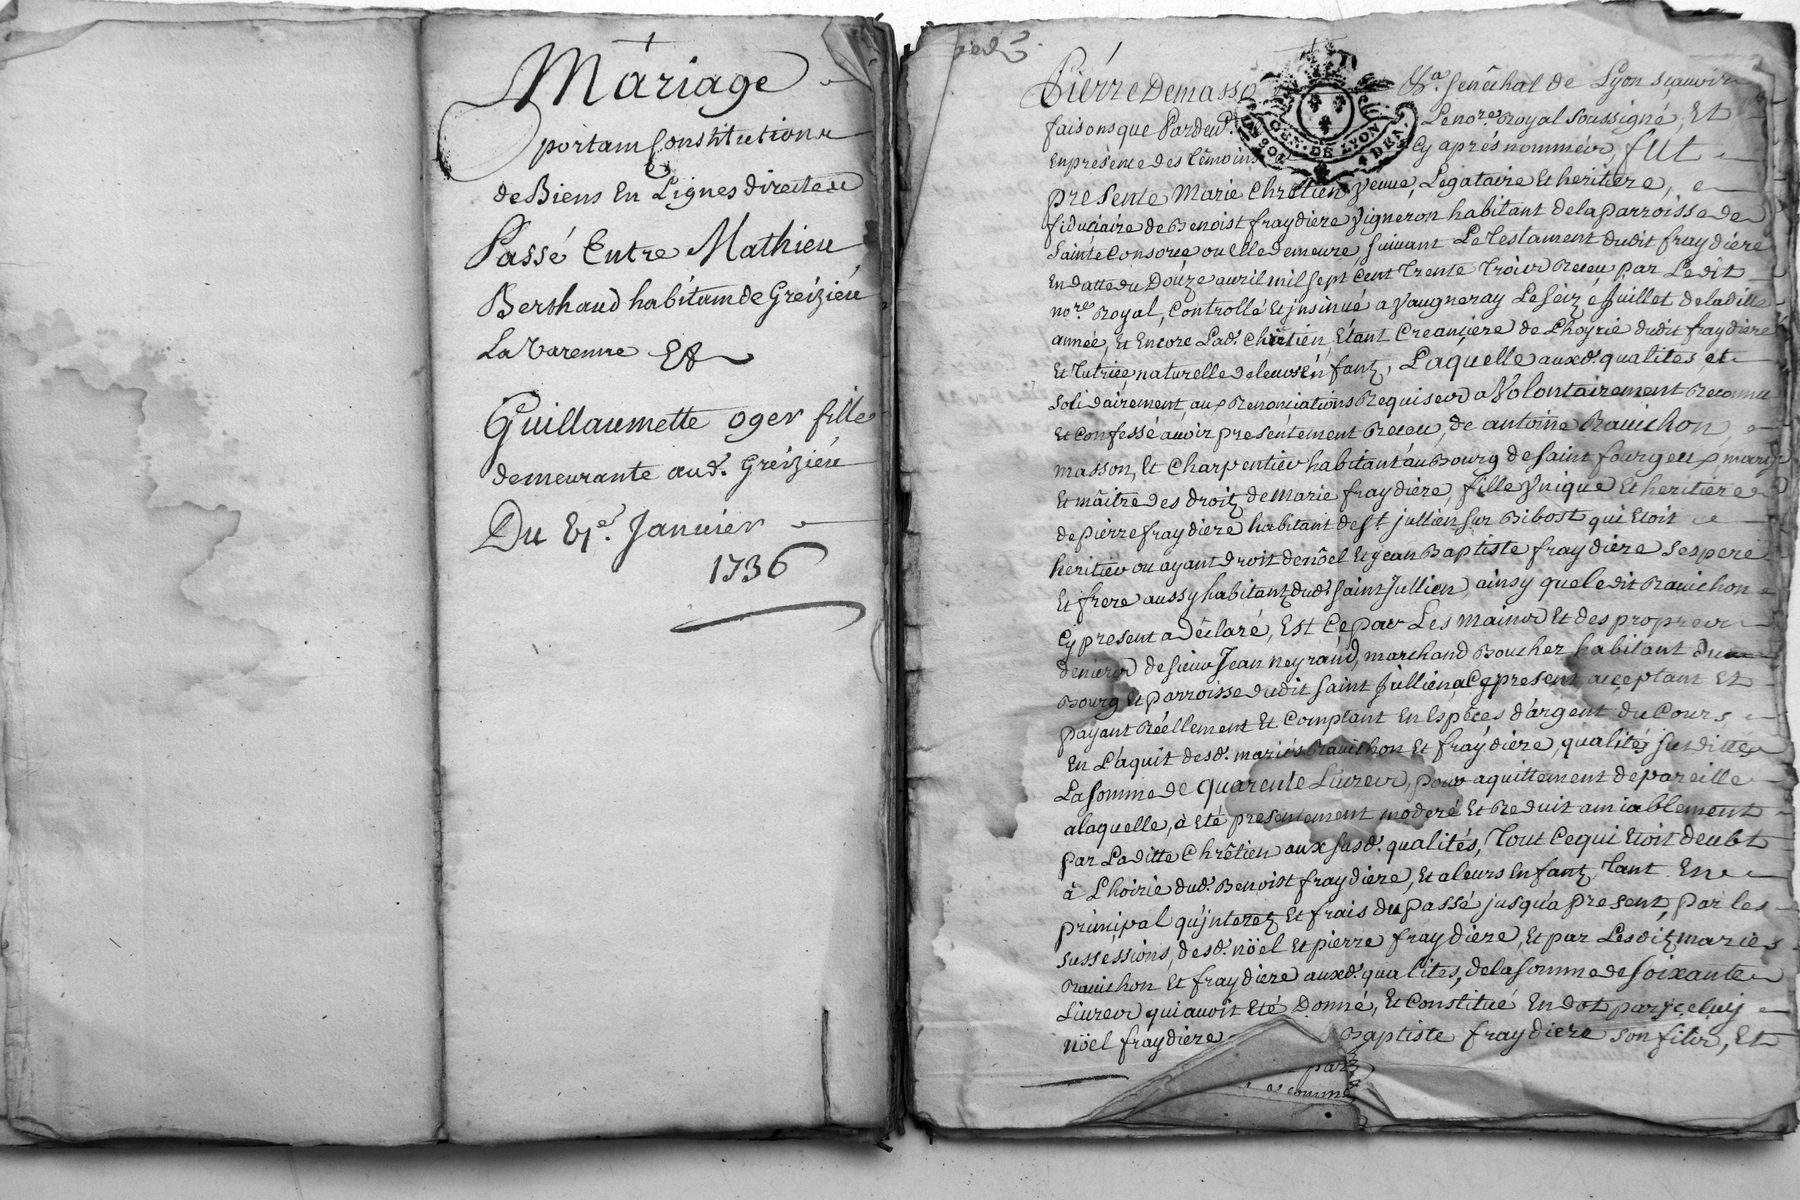 Mariage
portam Constitution
de Biens En Lignes directe
Passé Entre Mathieu
Berthaud habitam de Greizieu
La Varenne Et
Guillaumette oger fille
demeurante aud. Greizieu
Du Janvier
1736
Pierre Demasso Senêchal de Lyon scauoir
faisons que Pardeu. Le no.re royal soussigné, Et
En presence des têmoins Cy aprés nommés, fut
GEN. DE LYON
presente Marie Chrêtien veuue, Legataire Et heritiere,
fiduciaire de Benoist fraydiere vigneron habitant de la parroisse de
Sainte Consorce ou Elle demeure suivant Le Testament dudit fraydiere
En datte du Douze auril mil sept Cent Trente Trois Receu par Ledit
no.re Royal, Controllé Et jnsinué a Vaugneray Le Seizé Juillet de laditte
année, Et Encore Lad. Chrêtien Etant Creanciere de L'hoyrie dudit fraydiere
Et Tutrice naturelle de leurs Enfantz, Laquelle auxd. qualités, et
solidairement, aux Renonciations Requises a Volontairement Reconnu
Et Confessé auoir presentement Receu, de antoine Rauichon,
masson, Et Charpentier habitant au Bourg de Saint fourgeux, mary
Et maître des droitz de Marie fraydiere, fille Vnique Et heritiere
de pierre fraydiere habitant de St. jullien sur Bibost qui Etoit
heritier ou ayant droit de nöel Et jean Baptiste fraydiere ses pere
Et frere aussy habitantz dud. Saint Jullien, ainsy que ledit Rauichon
Cy present a Déclaré, Est Ce par Les mains Et des propres
deniers de sieur Jean neyrand, marchand Boucher habitant du
Bourg Et parroisse dudit Saint Jullien a Ce present acceptant Et
payant Réellement Et Comptant En Espêces d'argent du Cours,
En L'aquit desd. mariés Rauichon Et fraydiere, qualités susdittes
La somme de quarente Liures, pour aquittement de pareille
a laquelle, à Eté presentement moderé Et Reduit amiablement
par Laditte Chrêtien aux susd. qualités, Tout Ce qui Etoit deubt
à L'hoirie dud. Benoist fraydiere, Et a leurs Enfantz, Tant En
principal qu'jnteretz Et frais du passé jusqu'a present, par les
sussessions, desd. nöel Et pierre fraydiere, Et par Lesditz maries
Rauichon Et fraydiere auxd. qualités, de la somme de Soixante
Liures qui auoit Eté Donné, Et Constitué En dot par jceluy
nöel fraydiere Baptiste fraydiere son fils, Et
par
comme